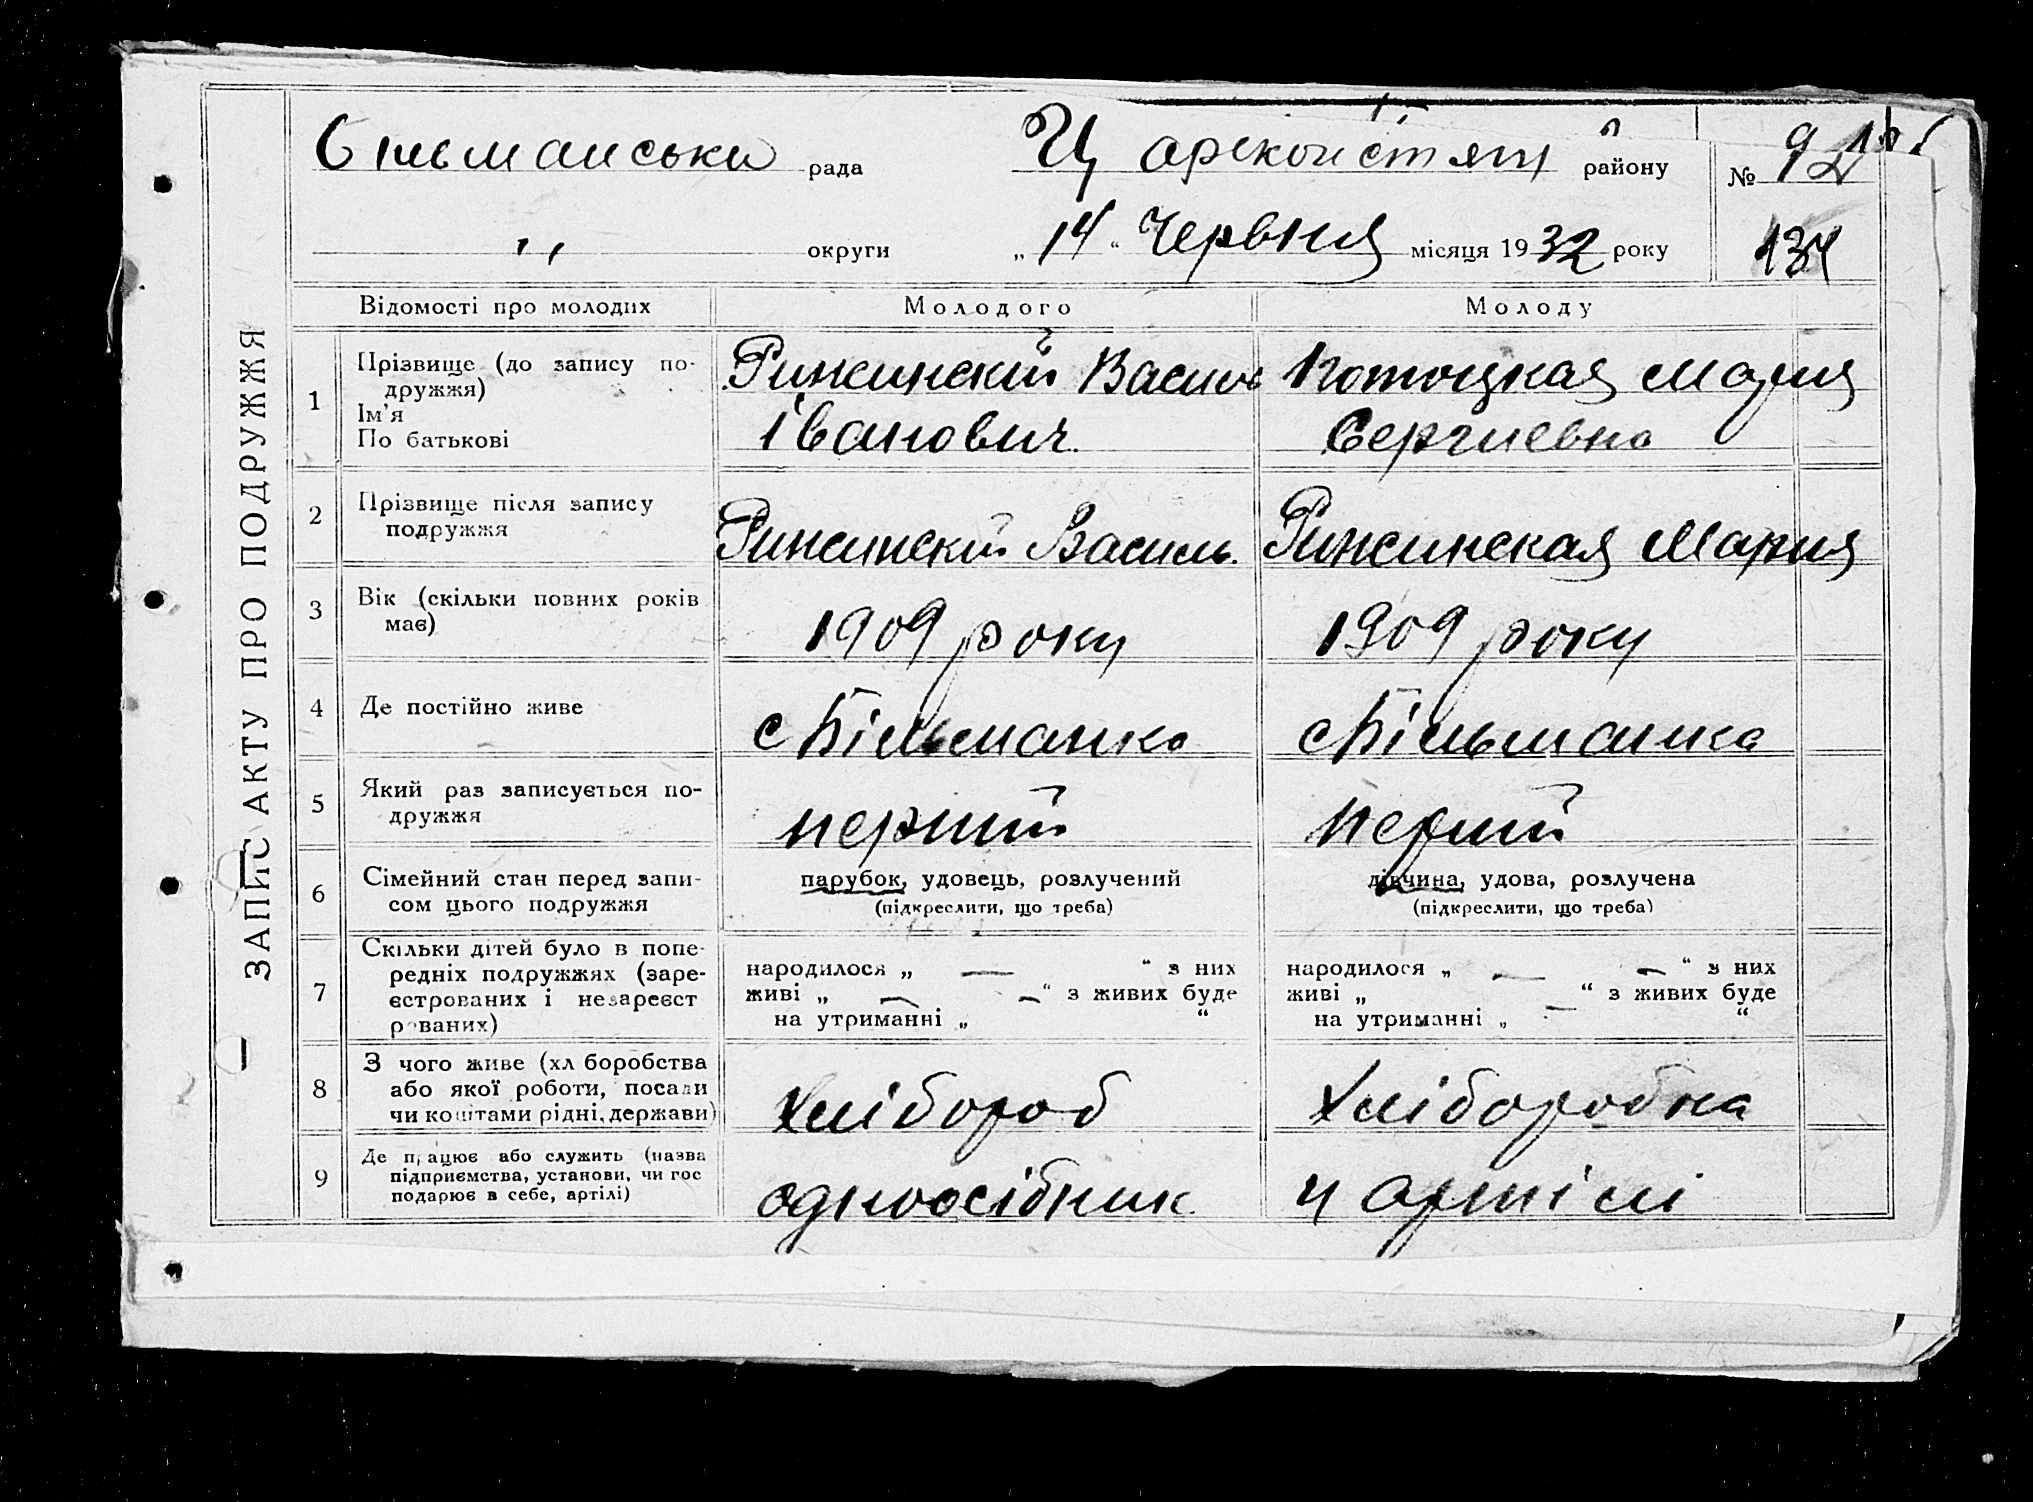 ЗАПИС АКТУ ПРО ПОДРУЖЖЯ
Більманська рада
Царекостянт району
№ 92
„ округи
„14“ Червня місяця 1932 року
134
Відомості про молодих
Молодого
Молоду
1
Прізвище (до запису по-
дружжя)
Ім'я
По батькові
Рижинский Василь
Іванович.
Котоцкая Мария
Сергиевна
2
Прізвище після запису
подружжя
Рижинский Василь.
Рижинская Мария
3
Вік (скільки повних років
має)
1909 року
1909 року
4
Де постійно живе
с Більманка
с Більманка
5
Який раз записується по-
дружжя
перший
перший
6
Сімейний стан перед запи-
сом цього подружжя
парубок, удовець, розлучений
(підкреслити, що треба)
дівчина, удова, розлучена
(підкреслити, що треба)
7
Скільки дітей було в попе-
редніх подружжях (заре-
єстрованих і незареєст
рованих)
народилося „ — “ з них
живі „ — — “ з живих буде
на утриманні „ “
народилося „ — — “ з них
живі „ “ з живих буде
на утриманні „ — “
8
З чого живе (хліборобства
або якої роботи, посади
чи коштами рідні, держави)
Хлібороб
Хліборобка
9
Де працює або служить (назва
підприємства, установи, чи гос
подарює в себе, артілі)
одноосібник
у артілі